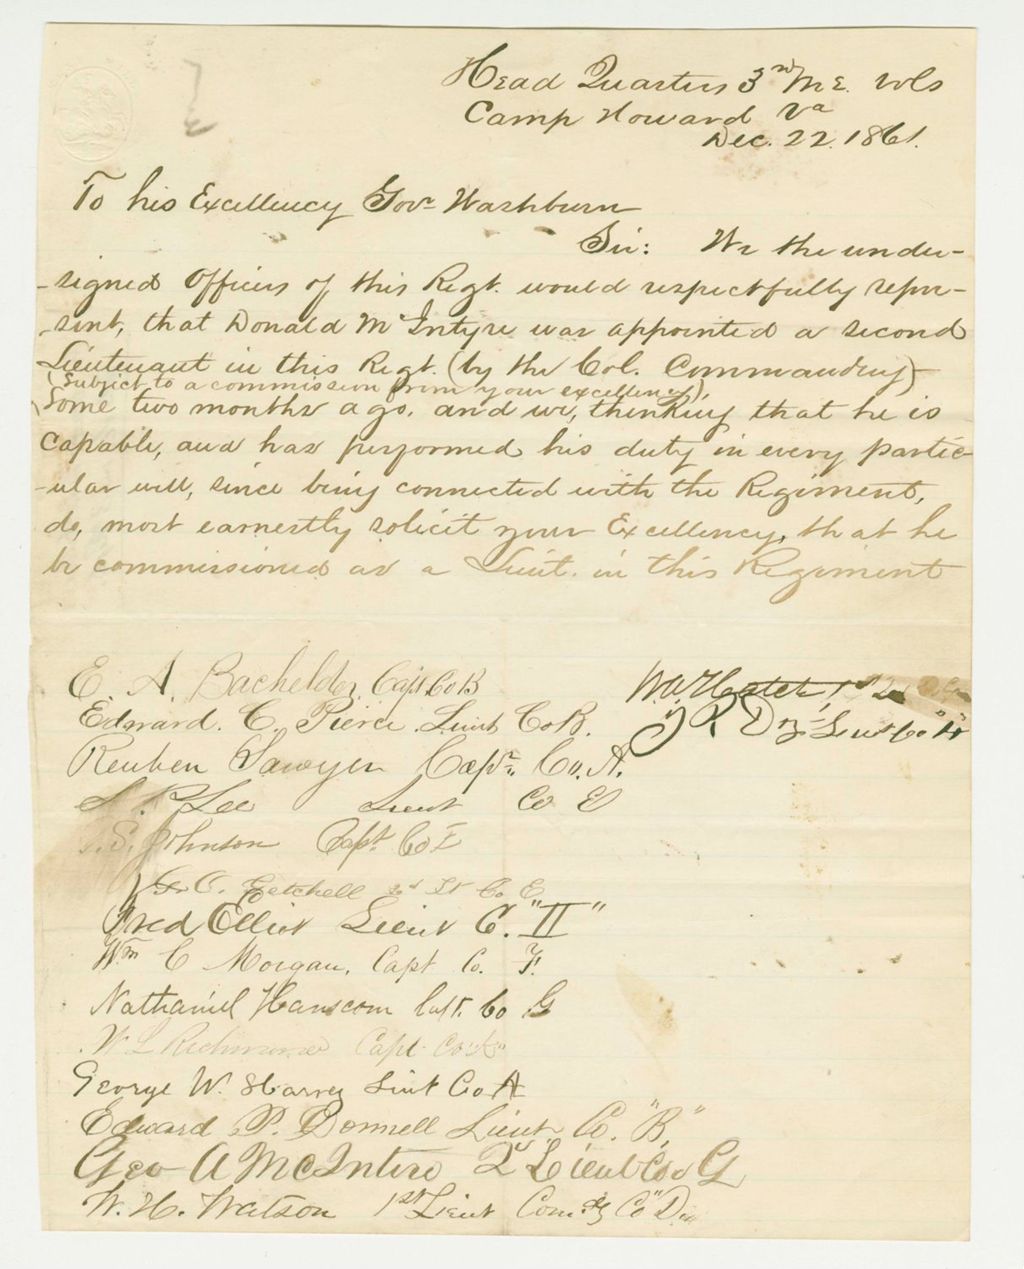 Head Quarters 3rd ME. Vols
Camp Howard Va
Dec. 22. 1861.
To his Excellency Gov. Washburn
Sir: We the under-
-signed Officers of this Regt. would respectfully repre-
-sent, that Donald McIntyre was appointed a second
Lieutenant in this Regt. (by the Col. Commanding)
(Subject to a commission from your excellency)
some two months ago. and we, thinking that he is
capable, and has performed his duty in every partic-
-ular well, since being connected with the Regiment,
do, most earnestly solicit your Excellency, that he
be commissioned as a Lieut. in this Regiment
E. A. Bachelder, Capt. Co B
Edward. C. Pierce Lieut Co B.
Reuben Sawyer Capt. Co. A.
S. R Lee Lieut Co
S. Johnson Capt Co I
G. O. Getchell 2d Lt Co E
Fred Elliot Lieut C. "H"
Wm C Morgan. Capt Co. F.
Nathaniel Hanscom Capt. Co G
W L Richmond Capt Co "H"
George W. Harvey Lieut Co A
Edward P. Donnell Lieut Co. "B"
Geo A McIntire 2d Lieut Co G
W. H. Watson 1st Lieut Com.dg Co "D"
Lieut Co "H"